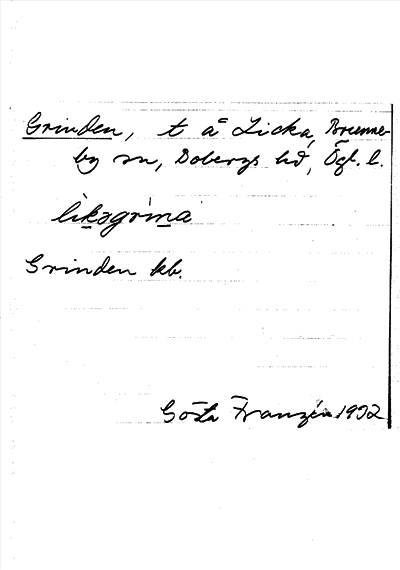 Grinden, t å Licka, Brunne-
by sn, Bobergs hd, Ögl. l.
lìkagrìna
Grinden kb.
Gösta Franzén 1932